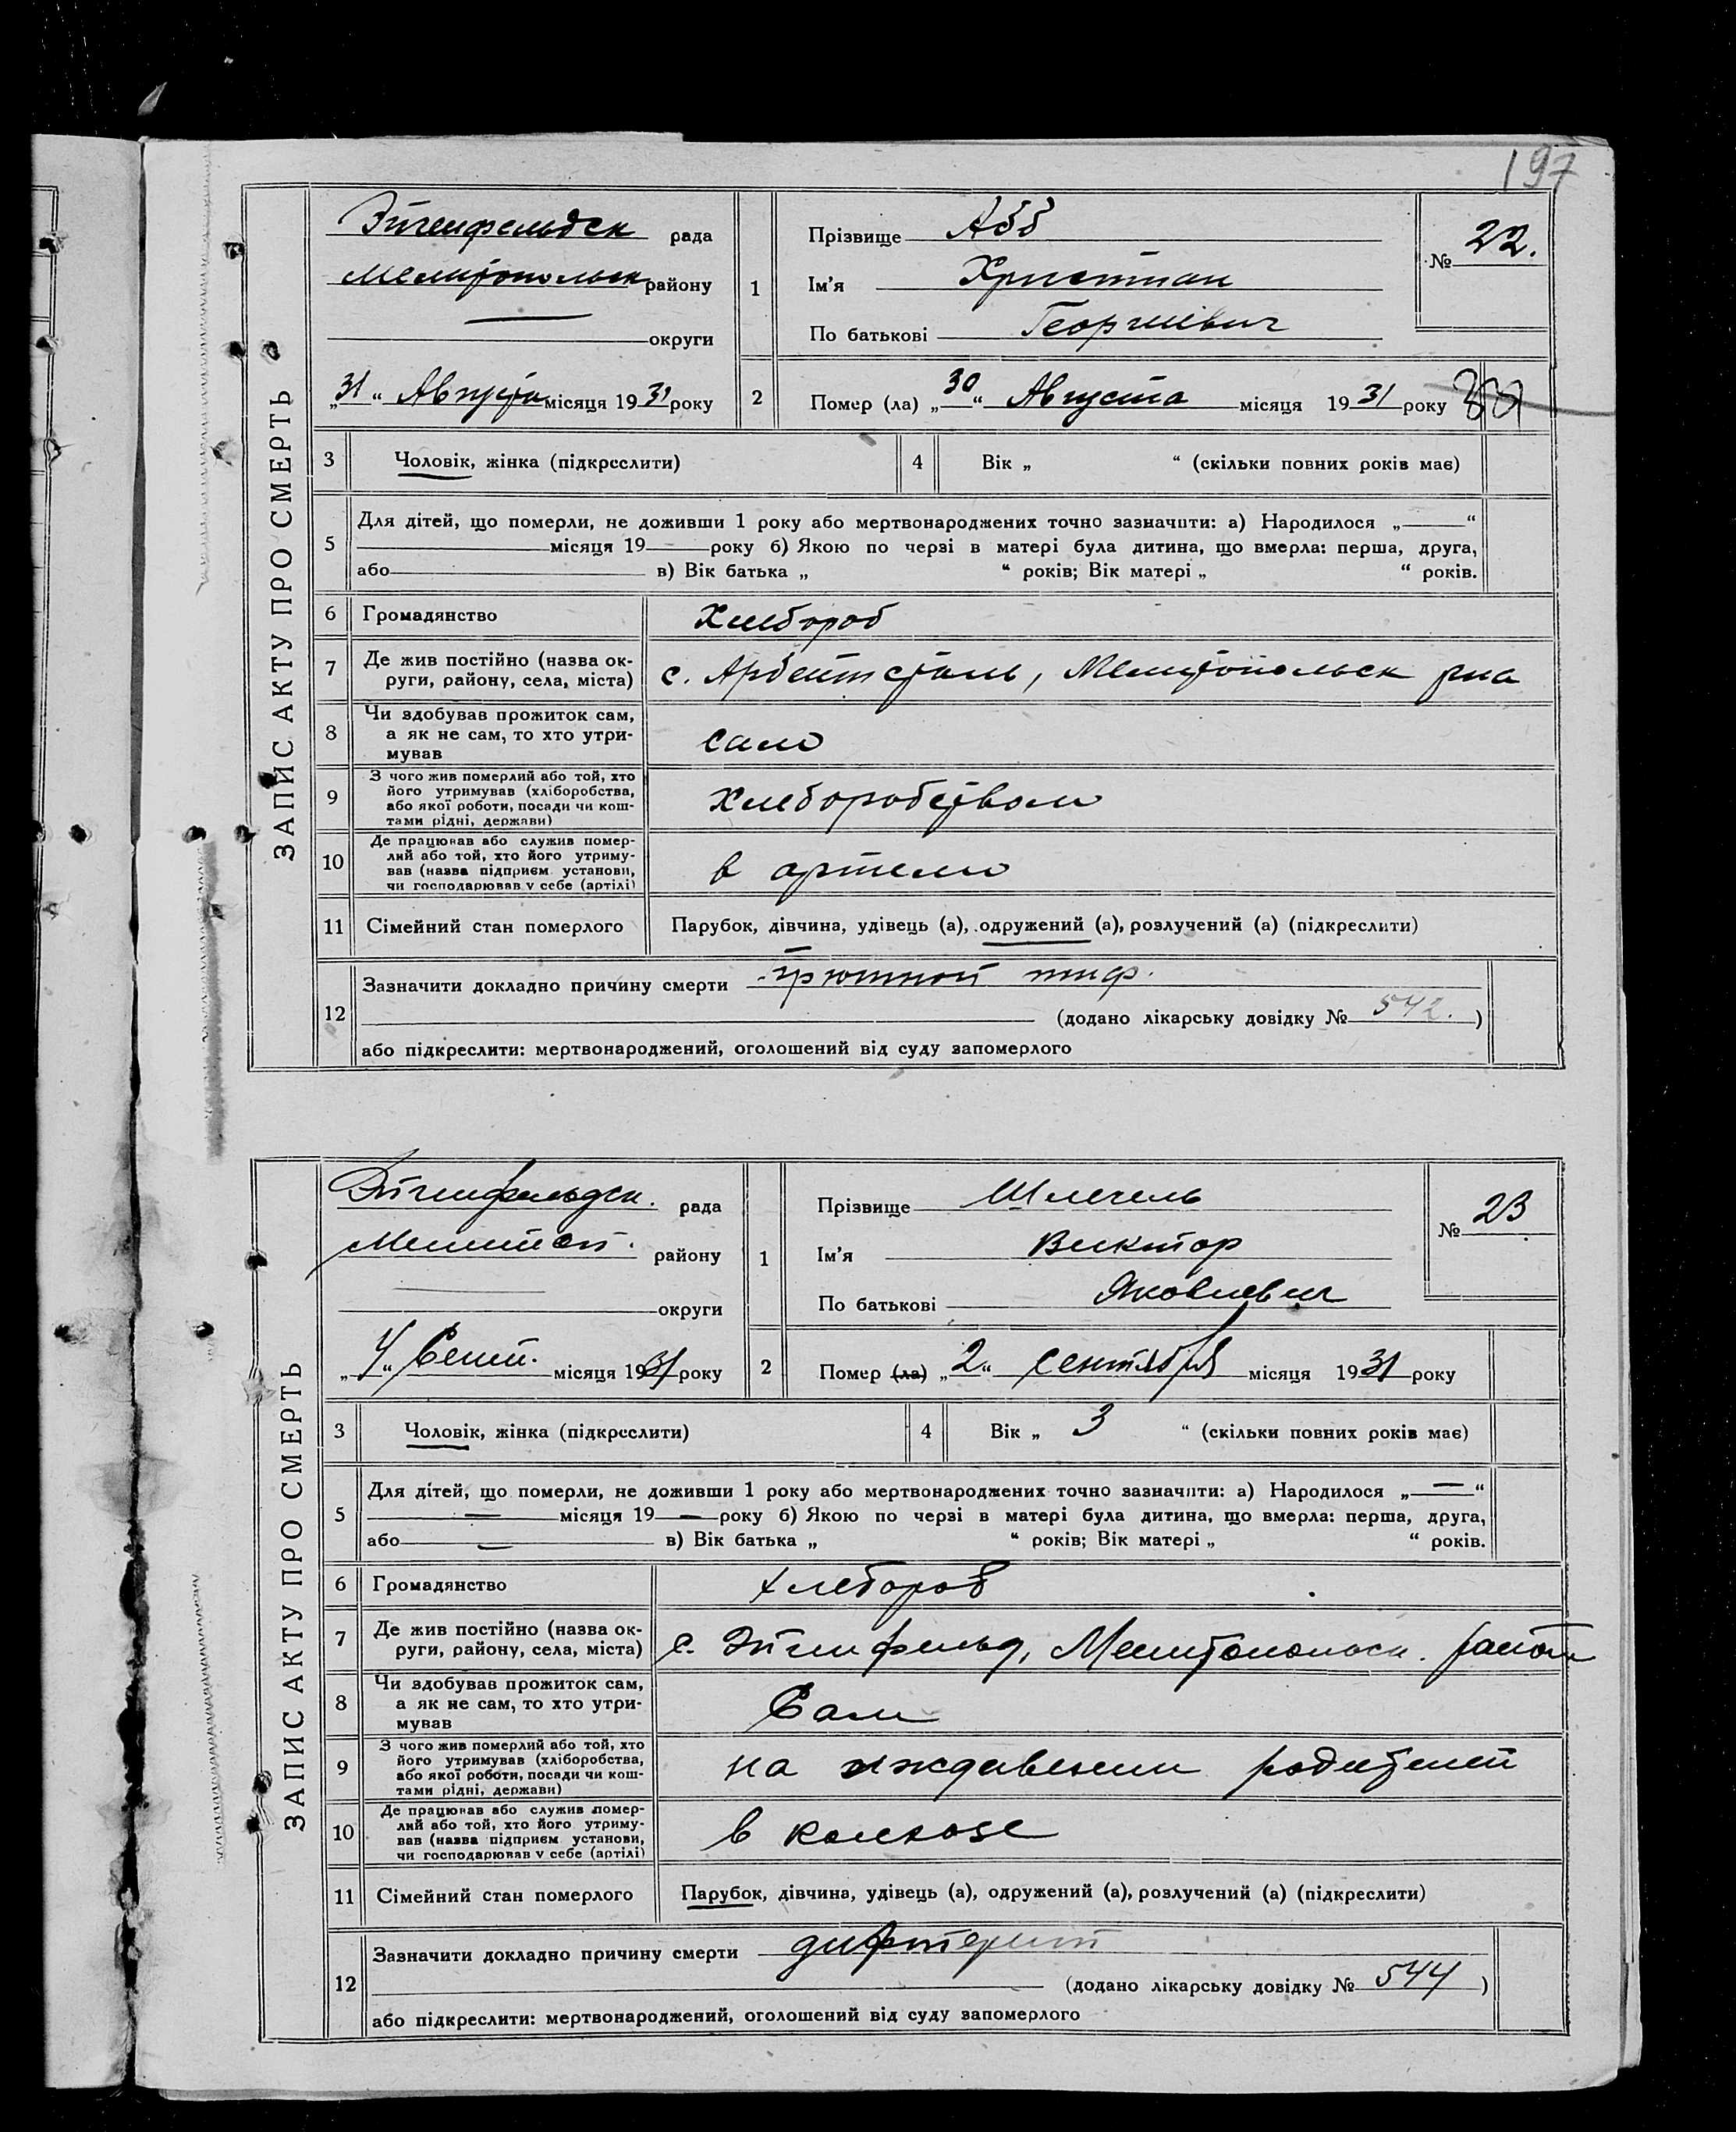 197
ЗАПИС АКТУ ПРО СМЕРТЬ
Эйгенфельдск рада
Мелитопольск району
округи
„31“ Августа місяця 1931 року
1
Прізвище Абб
Ім'я Христиан
По батькові Георгиевич
№ 22.
2 Помер (ла) „30“ Августа місяця 1931 року
3 Чоловік, жінка (підкреслити)
4 Вік „ “ (скільки повних років має)
5 Для дітей, що померли, не доживши 1 року або мертвонароджених точно зазначити: а) Народилося „ “
місяця 19 року б) Якою по черзі в матері була дитина, що вмерла: перша, друга,
або в) Вік батька „ “ років; Вік матері „ “ років.
6 Громадянство Хлебороб
7 Де жив постійно (назва ок-
руги, району, села, міста) с. Арбейтсталь, Мелитопольск р-на
8 Чи здобував прожиток сам,
а як не сам, то хто утри-
мував сам
9 З чого жив померлий або той, хто
його утримував (хліборобства,
або якої роботи, посади чи кош-
тами рідні, держави) хлеборобством
10 Де працював або служив помер-
лий або той, хто його утриму-
вав (назва підприєм. установи,
чи господарював у себе (артілі) в артели
11 Сімейний стан померлого Парубок, дівчина, удівець (а), одружений (а), розлучений (а) (підкреслити)
12 Зазначити докладно причину смерти брюшной тиф.
(додано лікарську довідку № 542.)
або підкреслити: мертвонароджений, оголошений від суду запомерлого
ЗАПИС АКТУ ПРО СМЕРТЬ
Эйгенфельдск. рада
Мелитоп. району
округи
„4“ Сент. місяця 1931 року
1
Прізвище Шлегель
Ім'я Виктор
По батькові Яковлевич
№ 23
2 Помер (ла) „2“ сентября місяця 1931 року
3 Чоловік, жінка (підкреслити)
4 Вік „ 3 “ (скільки повних років має)
5 Для дітей, що померли, не доживши 1 року або мертвонароджених точно зазначити: а) Народилося „—“
— місяця 19 — року б) Якою по черзі в матері була дитина, що вмерла: перша, друга,
або — в) Вік батька „ “ років; Вік матері „ “ років.
6 Громадянство хлебороб
7 Де жив постійно (назва ок-
руги, району, села, міста) с. Эйгенфельд, Мелитопольск. район
8 Чи здобував прожиток сам,
а як не сам, то хто утри-
мував Сам
9 З чого жив померлий або той, хто
його утримував (хліборобства,
або якої роботи, посади чи кош-
тами рідні, держави) на иждивении родителей
10 Де працював або служив помер-
лий або той, хто його утриму-
вав (назва підприєм. установи,
чи господарював у себе (артілі) в колхозе
11 Сімейний стан померлого Парубок, дівчина, удівець (а), одружений (а), розлучений (а) (підкреслити)
12 Зазначити докладно причину смерти дифтерит
(додано лікарську довідку № 544)
або підкреслити: мертвонароджений, оголошений від суду запомерлого